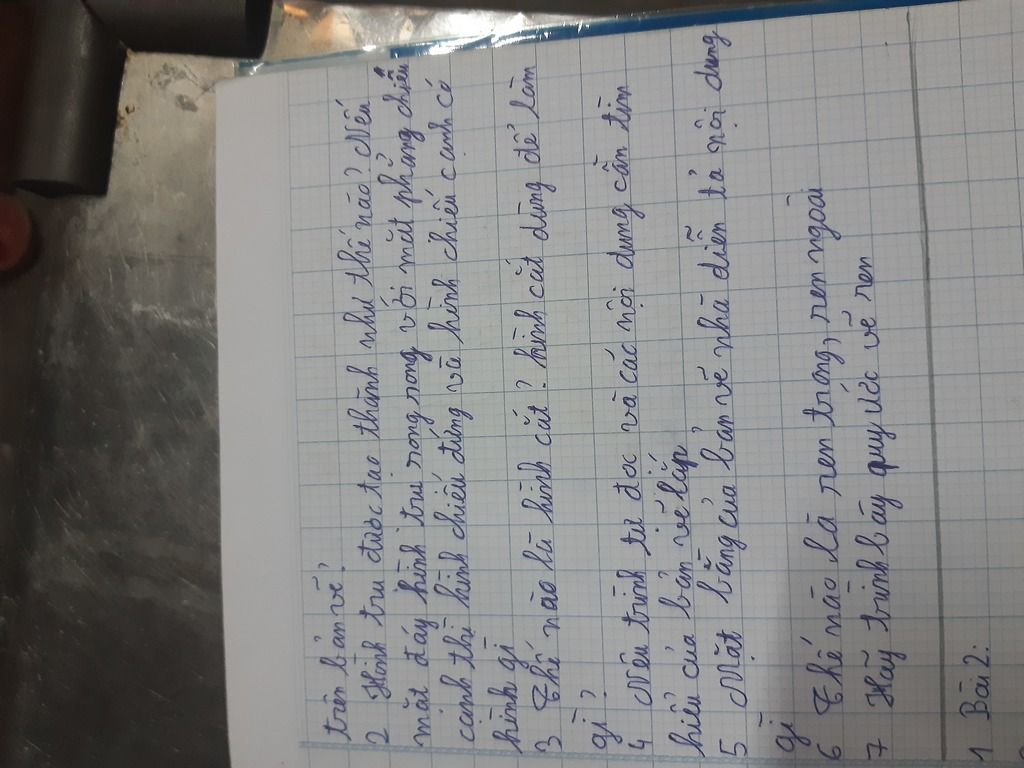 trên bản vẽ?
2 Hình trụ được tạo thành như thế nào? Nếu
mặt đáy hình trụ song song với mặt phẳng chiếu
cạnh thì hình chiếu đứng và hình chiếu cạnh có
hình gì
3 Thế nào là hình cắt? hình cắt dùng để làm
gì?
4 Nêu trình tự đọc và các nội dung cần tìm
hiểu của bản vẽ lắp
5 Mặt bằng của bản vẽ nhà diễn tả nội dung
gì
6 Thế nào là ren trong, ren ngoài
7 Hãy trình bày quy ước vẽ ren
1 Bài 2: